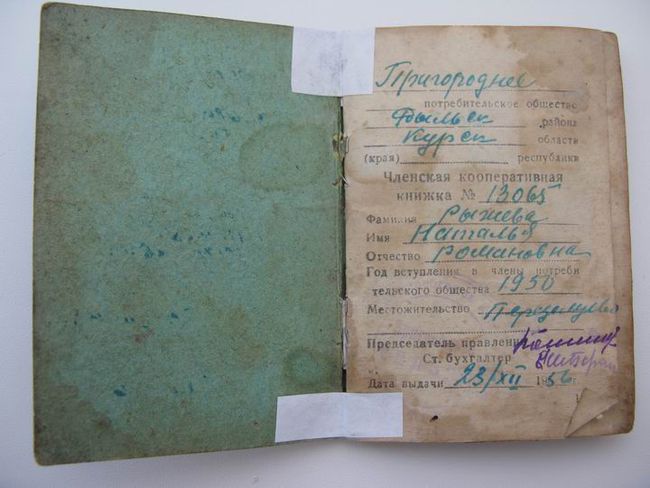 Пригороднее
потребительское общество
Рыльск района
Курск области
(края) республики
Членская кооперативная
книжка № 13065
Фамилия Рыжева
Имя Наталья
Отчество Романовна
Год вступления в члены потреби
тельского общества 1950
Местожительство
Председатель правления
Ст. бухгалтер
Дата выдачи 23/XII 1956 г.